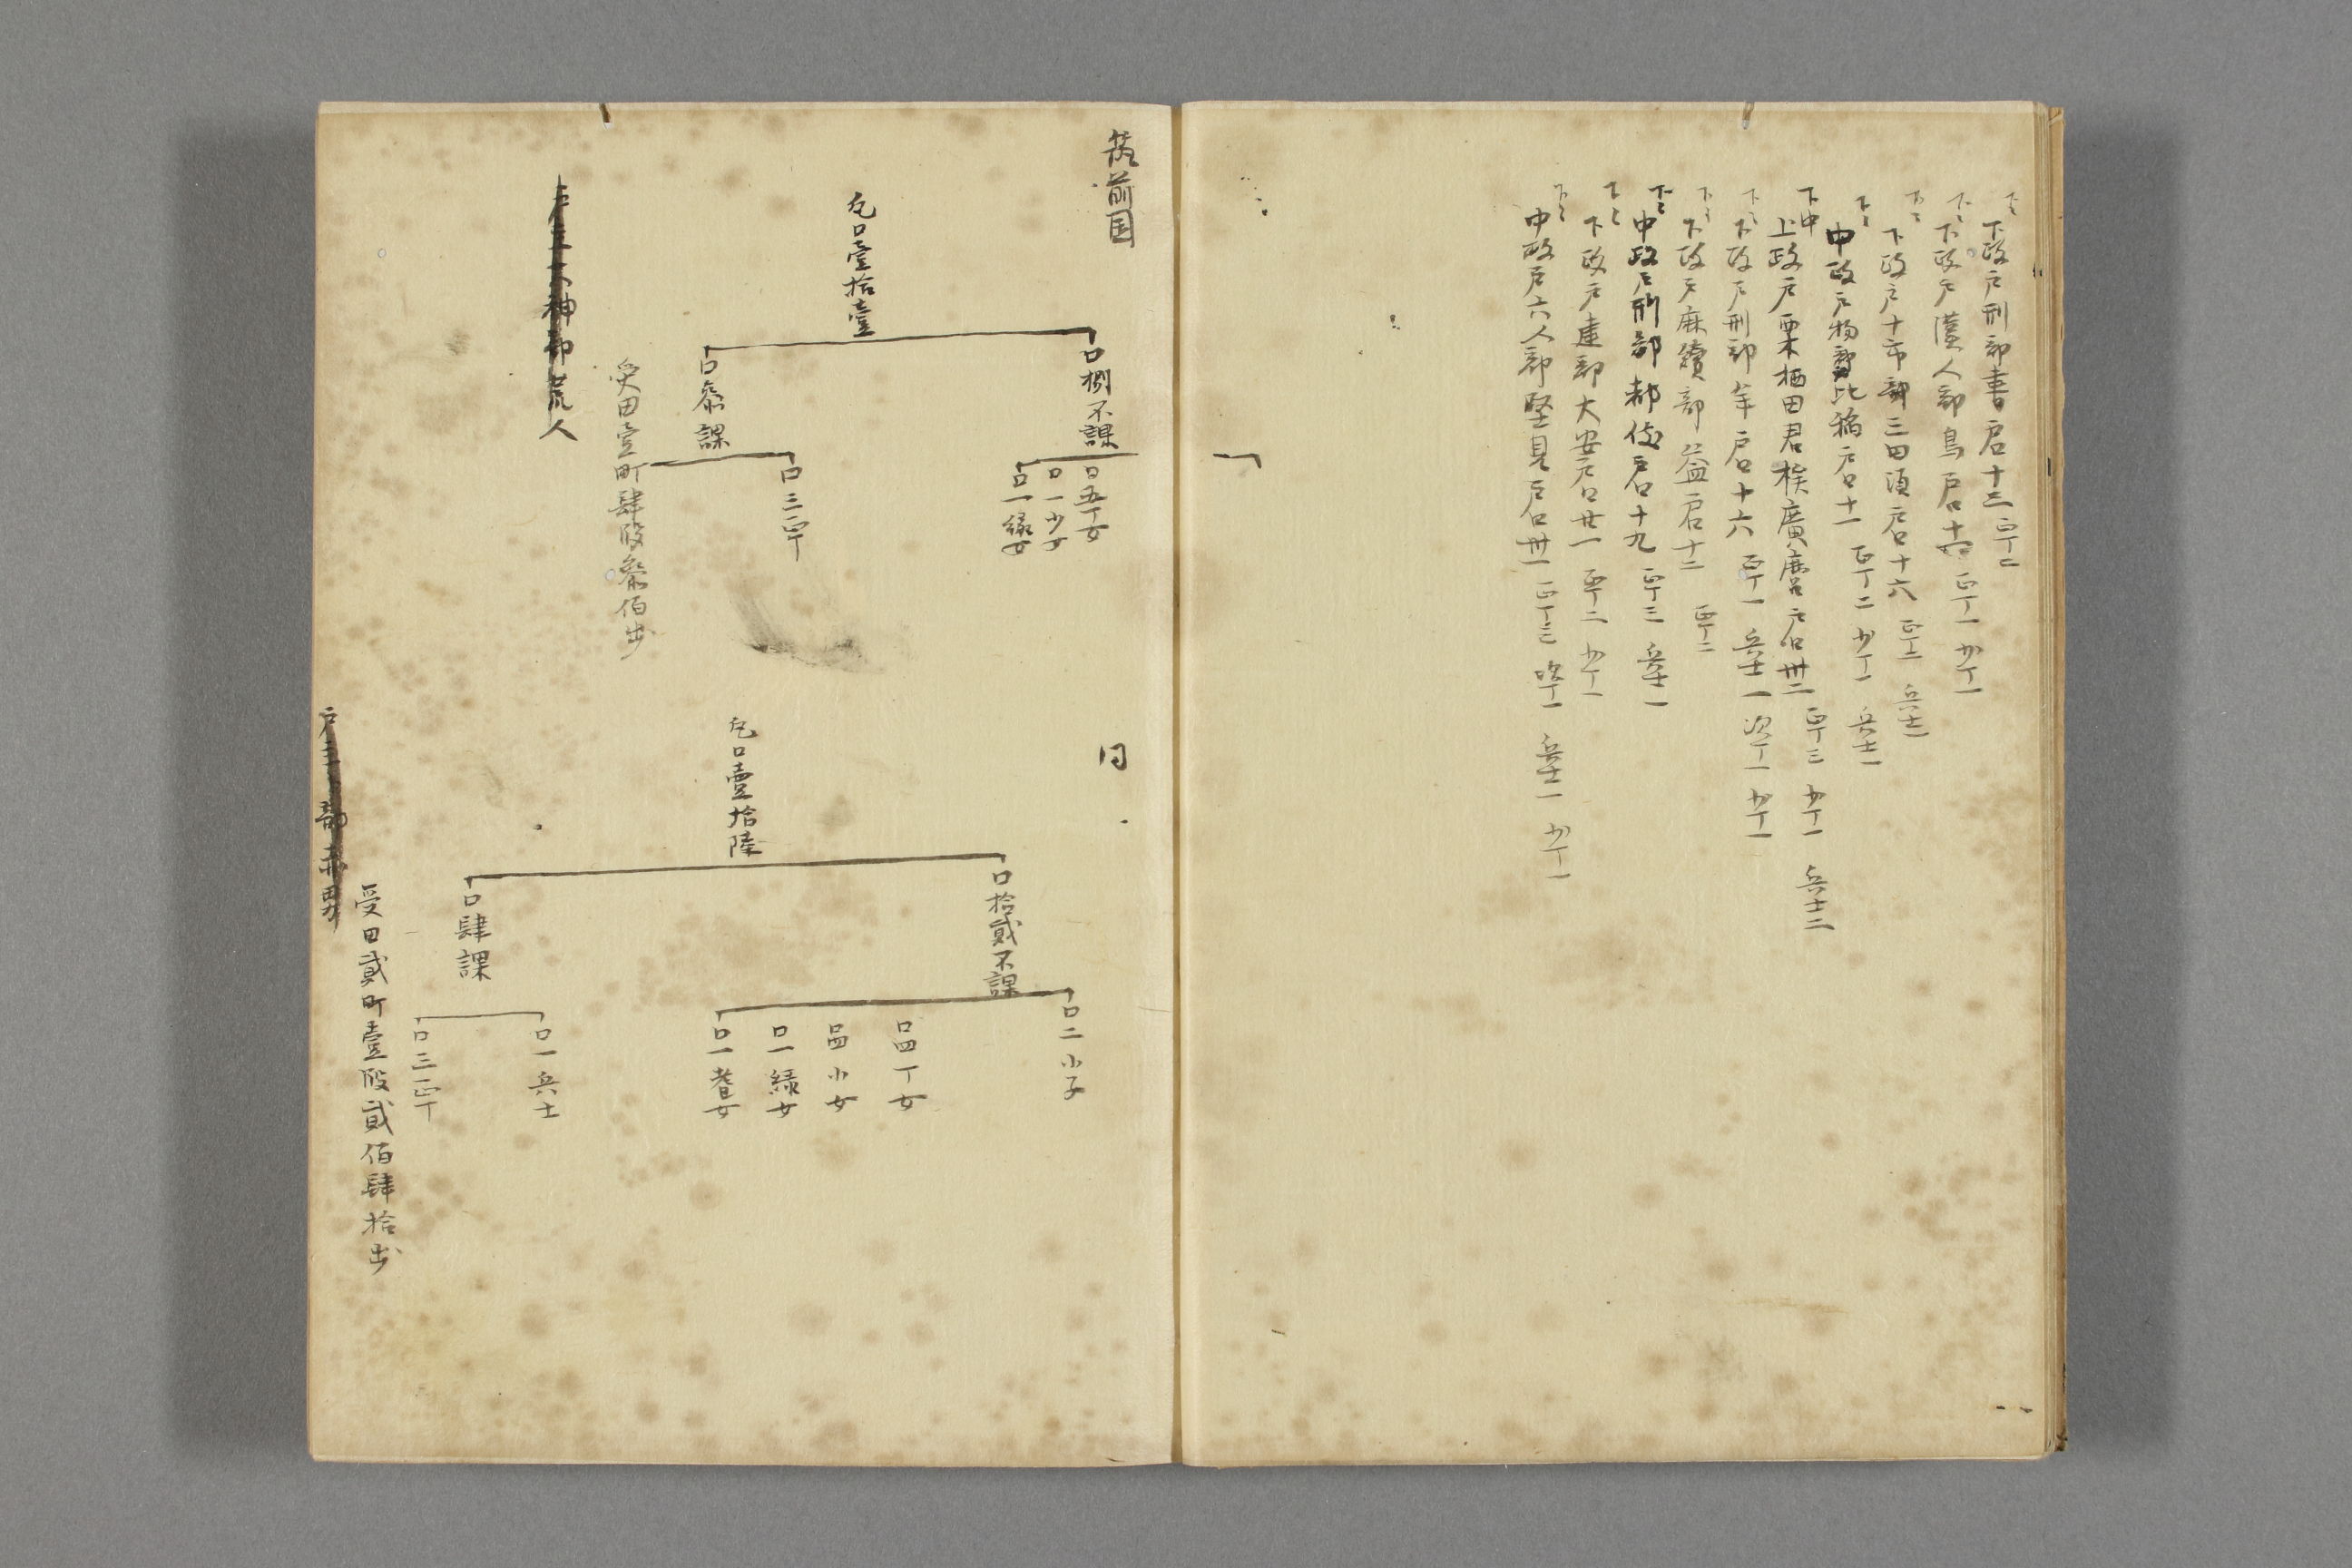 下〻
下政戸刑部書戸口十三 正丁二
下〻
下政戸漢人部鳥戸口十四 正丁一 少丁一
下〻
下政戸十市部三田須戸口十六 正丁二 兵士一
下〻
中政戸物部比稲戸口十一 正丁二 少丁一 兵士一
下中
上政戸栗栖田君族廣麿戸口卅二 正丁三 少丁一 兵士二
下〻
下政戸刑部年戸口十六 正丁一 兵士一 次丁一 少丁一
下〻
下政戸麻續部益戸口十二 正丁二
下〻
中政戸刑部都伎戸口十九 正丁三 兵士一
下〻
下政戸建部大安戸口廿一 正丁二 少丁一
下〻
中政戸六人部堅見戸口卅一 正丁三 次丁一 兵士一 少丁一
筑前国
凡口壹拾壹
口捌不課
口五丁女
口一少女
口一緑女
口参課
口三正丁
受田壹町肆段参佰歩
戸主大神部荒人
同
凡口壹拾陸
口拾貳不課
口二小子
口四丁女
口四小女
口一緑女
口一耆女
口肆課
口一兵士
口三正丁
受田貳町壹段貳佰肆拾歩
戸主 部赤男